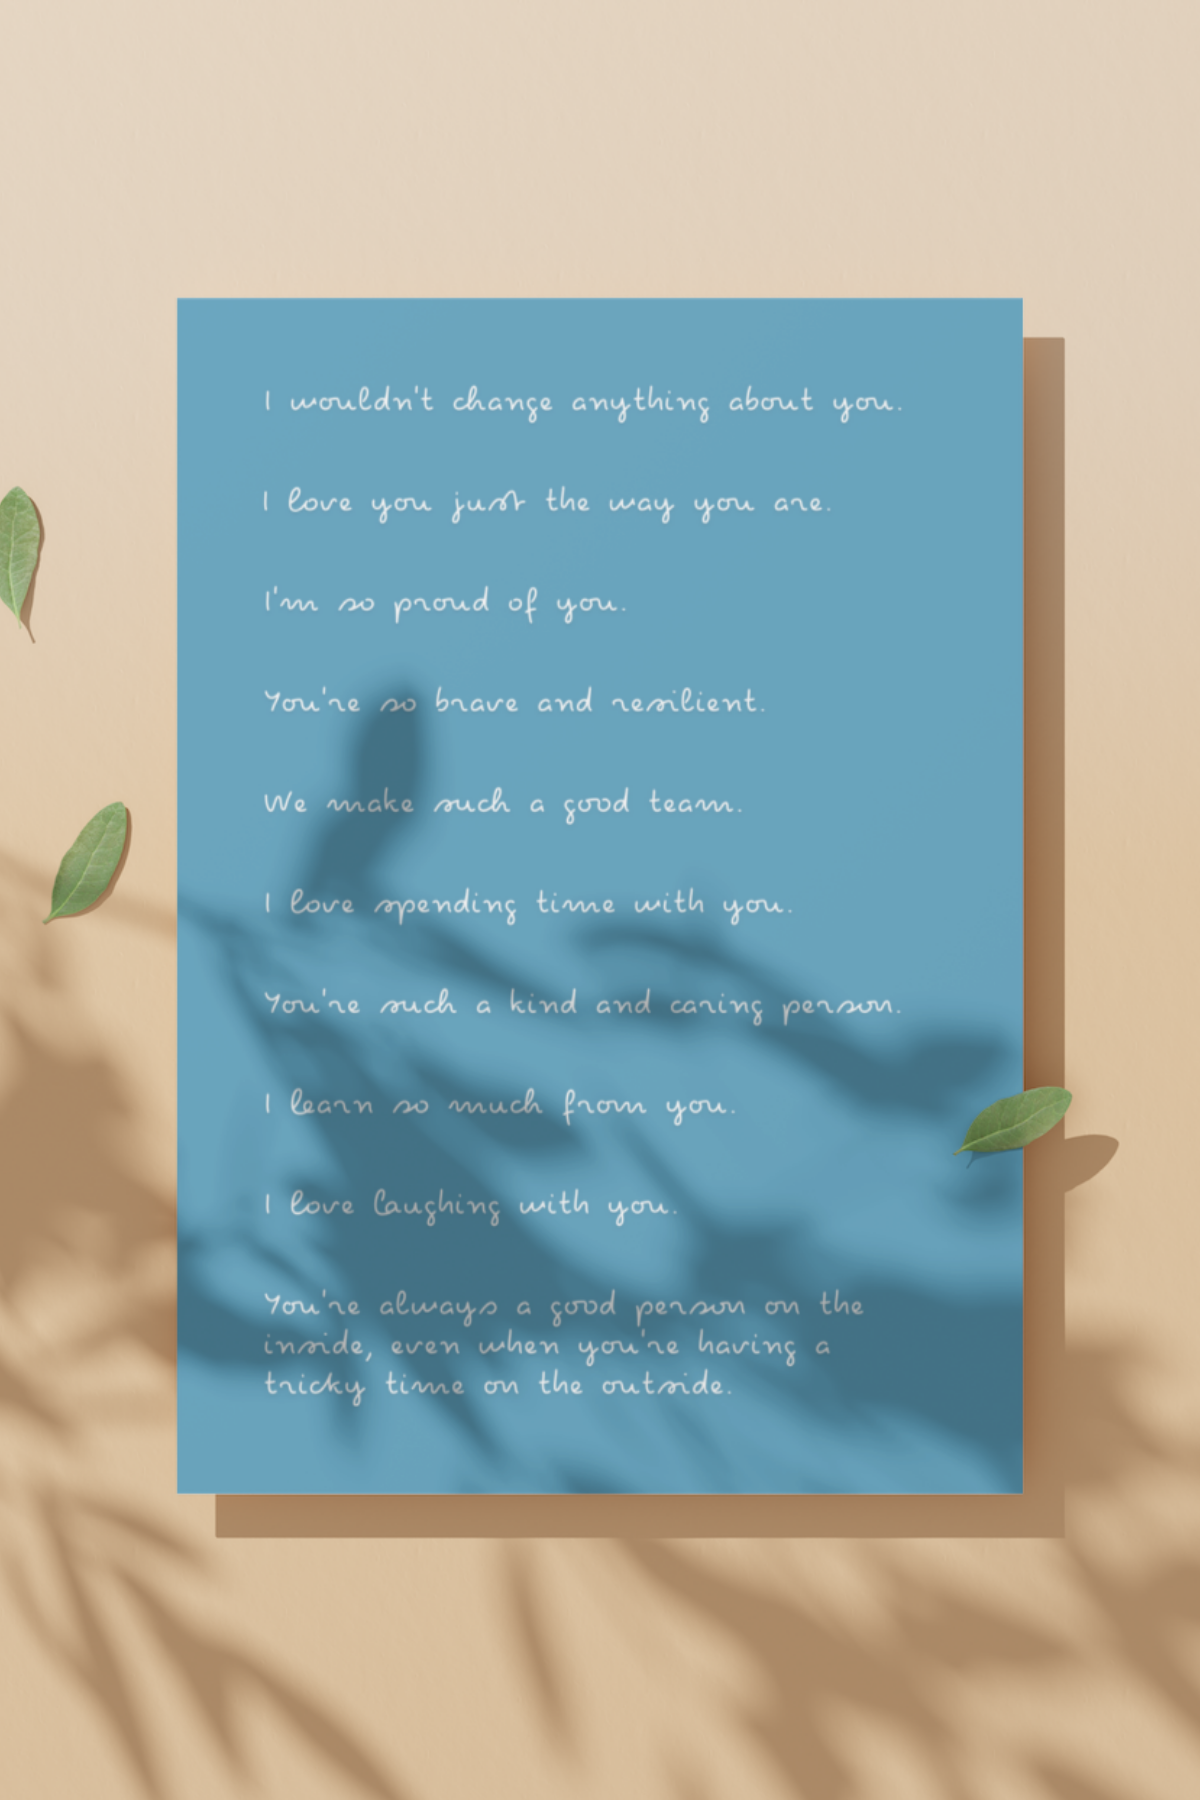 I wouldn't change anything about you.
I love you just the way you are.
I'm so proud of you.
You're so brave and resilient.
We make such a good team.
I love spending time with you.
You're such a kind and caring person.
I learn so much from you.
I love laughing with you.
You're always a good person on the
inside, even when you're having a
tricky time on the outside.